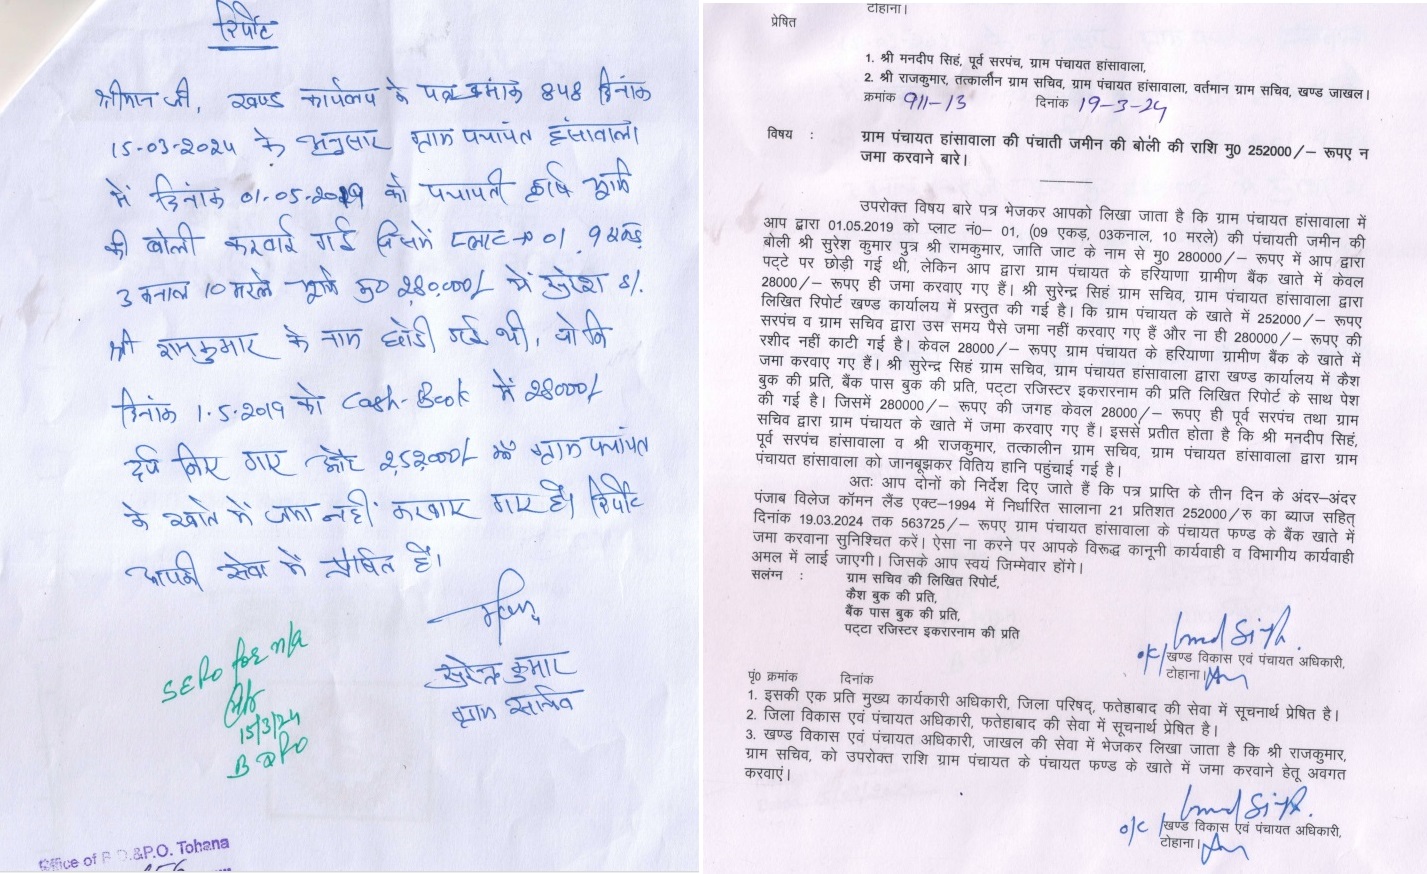 रिपोर्ट
श्रीमान जी, खण्ड कार्यालय के पत्र क्रमांक 848 दिनांक
15-03-2024 के अनुसार ग्राम पंचायत हंसावाला
में दिनांक 01-05-2019 को पंचायती कृषि भूमि
की बोली करवाई गई जिसमें प्लाट → 01, 9 एकड़
3 कनाल 10 मरले भूमि मु0 2,80,000/- में सुरेश S/o
श्री रामकुमार के नाम छोडी गई थी, जो कि
दिनांक 1-5-2019 को Cash-Book में 28000/-
दर्ज किए गए और 252000/- को ग्राम पंचायत
के खाते में जमा नहीं करवाए गए है। रिपोर्ट
आपकी सेवा में प्रेषित है।
सुरेन्द्र कुमार
ग्राम सचिव
SEPO for n/a
15/3/24
BDPO
Office of B.D.&P.O. Tohana
टोहाना।
प्रेषित
1. श्री मनदीप सिहं, पूर्व सरपंच, ग्राम पंचायत हांसावाला,
2. श्री राजकुमार, तत्कालीन ग्राम सचिव, ग्राम पंचायत हांसावाला, वर्तमान ग्राम सचिव, खण्ड जाखल।
क्रमांक 911-13 दिनांक 19-3-24
विषय : ग्राम पंचायत हांसावाला की पंचाती जमीन की बोली की राशि मु0 252000/– रूपए न
जमा करवाने बारे।
उपरोक्त विषय बारे पत्र भेजकर आपको लिखा जाता है कि ग्राम पंचायत हांसावाला में
आप द्वारा 01.05.2019 को प्लाट नं0– 01, (09 एकड़, 03कनाल, 10 मरले) की पंचायती जमीन की
बोली श्री सुरेश कुमार पुत्र श्री रामकुमार, जाति जाट के नाम से मु0 280000/– रूपए में आप द्वारा
पट्टे पर छोड़ी गई थी, लेकिन आप द्वारा ग्राम पंचायत के हरियाणा ग्रामीण बैंक खाते में केवल
28000/– रूपए ही जमा करवाए गए हैं। श्री सुरेन्द्र सिहं ग्राम सचिव, ग्राम पंचायत हांसावाला द्वारा
लिखित रिपोर्ट खण्ड कार्यालय में प्रस्तुत की गई है। कि ग्राम पंचायत के खाते में 252000/– रूपए
सरपंच व ग्राम सचिव द्वारा उस समय पैसे जमा नहीं करवाए गए हैं और ना ही 280000/– रूपए की
रशीद नहीं काटी गई है। केवल 28000/– रूपए ग्राम पंचायत के हरियाणा ग्रामीण बैंक के खाते में
जमा करवाए गए हैं। श्री सुरेन्द्र सिहं ग्राम सचिव, ग्राम पंचायत हांसावाला द्वारा खण्ड कार्यालय में कैश
बुक की प्रति, बैंक पास बुक की प्रति, पट्टा रजिस्टर इकरारनाम की प्रति लिखित रिपोर्ट के साथ पेश
की गई है। जिसमें 280000/– रूपए की जगह केवल 28000/– रूपए ही पूर्व सरपंच तथा ग्राम
सचिव द्वारा ग्राम पंचायत के खाते में जमा करवाए गए हैं। इससे प्रतीत होता है कि श्री मनदीप सिहं,
पूर्व सरपंच हांसावाला व श्री राजकुमार, तत्कालीन ग्राम सचिव, ग्राम पंचायत हांसावाला द्वारा ग्राम
पंचायत हांसावाला को जानबूझकर वितिय हानि पहुंचाई गई है।
अतः आप दोनों को निर्देश दिए जाते हैं कि पत्र प्राप्ति के तीन दिन के अंदर–अंदर
पंजाब विलेज कॉमन लैंड एक्ट–1994 में निर्धारित सालाना 21 प्रतिशत 252000/रु का ब्याज सहित्
दिनांक 19.03.2024 तक 563725/– रूपए ग्राम पंचायत हांसावाला के पंचायत फण्ड के बैंक खाते में
जमा करवाना सुनिश्चित करें। ऐसा ना करने पर आपके विरूद्ध कानूनी कार्यवाही व विभागीय कार्यवाही
अमल में लाई जाएगी। जिसके आप स्वयं जिम्मेवार होंगे।
सलंग्न : ग्राम सचिव की लिखित रिपोर्ट,
कैश बुक की प्रति,
बैंक पास बुक की प्रति,
पट्टा रजिस्टर इकरारनाम की प्रति
o/c खण्ड विकास एवं पंचायत अधिकारी,
टोहाना।
पृं0 क्रमांक दिनांक
1. इसकी एक प्रति मुख्य कार्यकारी अधिकारी, जिला परिषद्, फतेहाबाद की सेवा में सूचनार्थ प्रेषित है।
2. जिला विकास एवं पंचायत अधिकारी, फतेहाबाद की सेवा में सूचनार्थ प्रेषित है।
3. खण्ड विकास एवं पंचायत अधिकारी, जाखल की सेवा में भेजकर लिखा जाता है कि श्री राजकुमार,
ग्राम सचिव, को उपरोक्त राशि ग्राम पंचायत के पंचायत फण्ड के खाते में जमा करवाने हेतू अवगत
करवाएं।
o/c खण्ड विकास एवं पंचायत अधिकारी,
टोहाना।